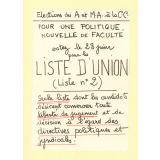 Elections du A et M.A. à la CC
POUR UNE POLITIQUE
NOUVELLE DE FACULTE
votez le 28 juin
pour la
LISTE D'UNION
(Liste n°2)
Seule liste dont les candidats
désirent conserver toute
liberté de jugement et de
décision à l'égard des
directives politiques et
syndicales.